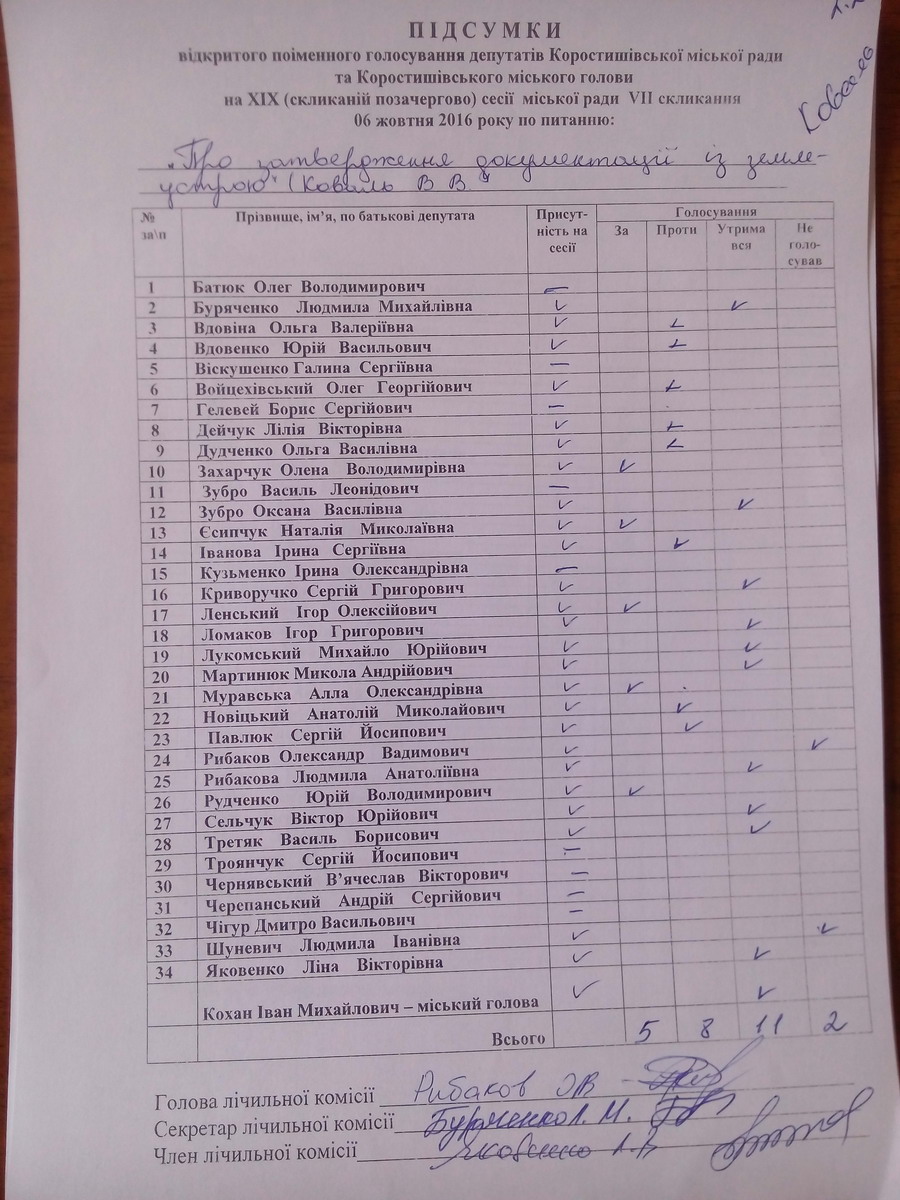 ПІДСУМКИ
відкритого поіменного голосування депутатів Коростишівської міської ради
та Коростишівського міського голови
на XIX (скликаній позачергово) сесії міської ради VII скликання
06 жовтня 2016 року по питанню:
„Про затвердження документації із земле-
устрою" (Коваль В В"
№ за\п Прізвище, ім’я, по батькові депутата Присут-ність на сесії Голосування
За Проти Утримався Не голо-сував
1 Батюк Олег Володимирович –
2 Буряченко Людмила Михайлівна ✓ ✓
3 Вдовіна Ольга Валеріївна ✓ ✓
4 Вдовенко Юрій Васильович ✓ ✓
5 Віскушенко Галина Сергіївна –
6 Войцехівський Олег Георгійович ✓ ✓
7 Гелевей Борис Сергійович –
8 Дейчук Лілія Вікторівна ✓ ✓
9 Дудченко Ольга Василівна ✓ ✓
10 Захарчук Олена Володимирівна ✓ ✓
11 Зубро Василь Леонідович –
12 Зубро Оксана Василівна ✓ ✓
13 Єсипчук Наталія Миколаївна ✓ ✓
14 Іванова Ірина Сергіївна ✓ ✓
15 Кузьменко Ірина Олександрівна –
16 Криворучко Сергій Григорович ✓ ✓
17 Ленський Ігор Олексійович ✓ ✓
18 Ломаков Ігор Григорович ✓ ✓
19 Лукомський Михайло Юрійович ✓ ✓
20 Мартинюк Микола Андрійович ✓ ✓
21 Муравська Алла Олександрівна ✓ ✓
22 Новіцький Анатолій Миколайович ✓ ✓
23 Павлюк Сергій Йосипович ✓ ✓
24 Рибаков Олександр Вадимович ✓ ✓
25 Рибакова Людмила Анатоліївна ✓ ✓
26 Рудченко Юрій Володимирович ✓ ✓
27 Сельчук Віктор Юрійович ✓ ✓
28 Третяк Василь Борисович ✓ ✓
29 Троянчук Сергій Йосипович –
30 Чернявський В’ячеслав Вікторович –
31 Черепанський Андрій Сергійович –
32 Чігур Дмитро Васильович –
33 Шуневич Людмила Іванівна ✓ ✓
34 Яковенко Ліна Вікторівна ✓ ✓
Кохан Іван Михайлович – міський голова ✓ ✓
Всього 5 8 11 2
Голова лічильної комісії Рибаков ОВ
Секретар лічильної комісії Буряченко Л. М.
Член лічильної комісії Яковенко Л. В